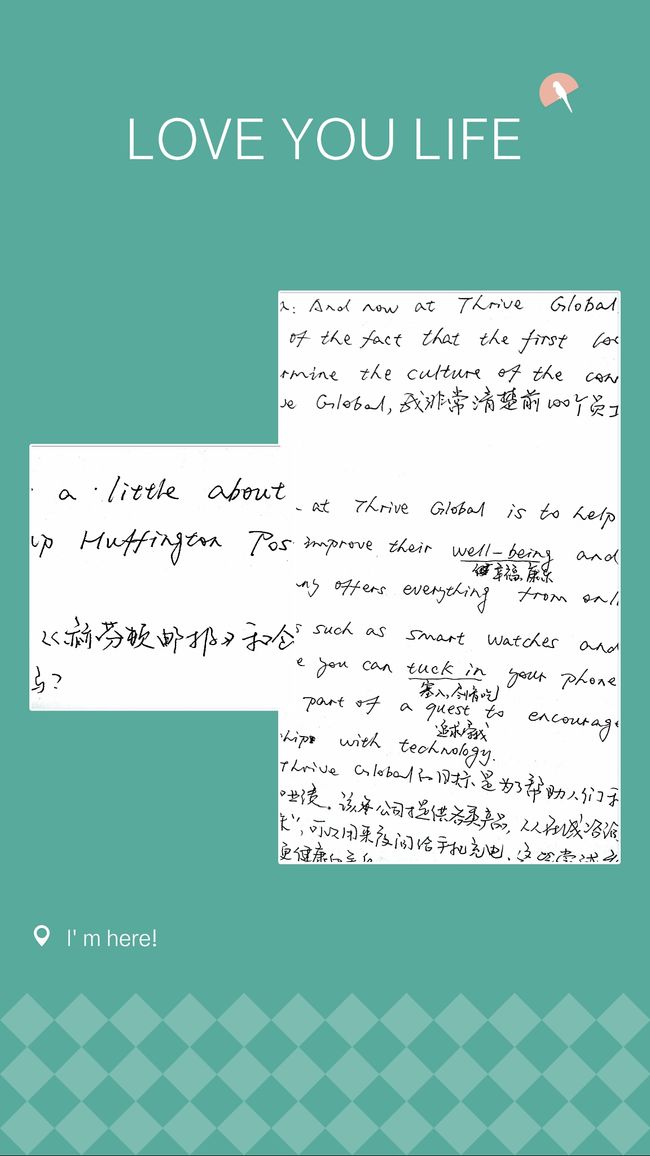 LOVE YOU LIFE
: And now at Thrive Global
of the fact that the first
rmine the culture of the
Global, 我非常清楚前100个员工
· a · little about
up Huffington Pos
《赫芬顿邮报》和
?
at Thrive Global is to help
improve their well-being and
幸福,康乐
ny offers everything from onl
s such as smart watches and
e you can tuck in your phone
塞入,尽情吃
part of a quest to encourag
追求,寻找
ships with technology.
Thrive Global的目标是为了帮助人们
业绩。该公司提供各类产品,从在线
”,可以用来夜间给手机充电。这
更健康的
I'm here!